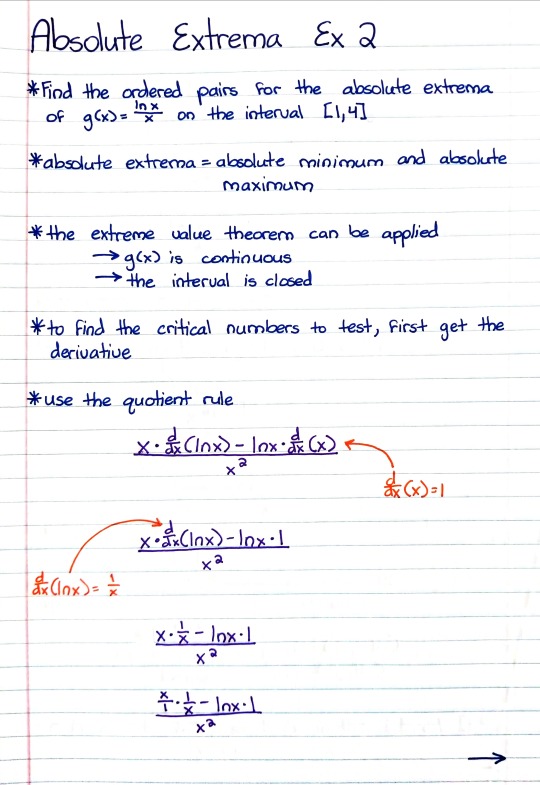 Absolute Extrema Ex 2
*Find the ordered pairs for the absolute extrema
of g(x) = ln x/x on the interval [1,4]
*absolute extrema = absolute minimum and absolute
maximum
*the extreme value theorem can be applied
→ g(x) is continuous
→ the interval is closed
*to find the critical numbers to test, first get the
derivative
*use the quotient rule
(x · d/dx(lnx) - lnx · d/dx(x))/x²
d/dx(x) = 1
(x · d/dx(lnx) - lnx · 1)/x²
d/dx(lnx) = 1/x
(x · 1/x - lnx · 1)/x²
(x/1 · 1/x - lnx · 1)/x²
→